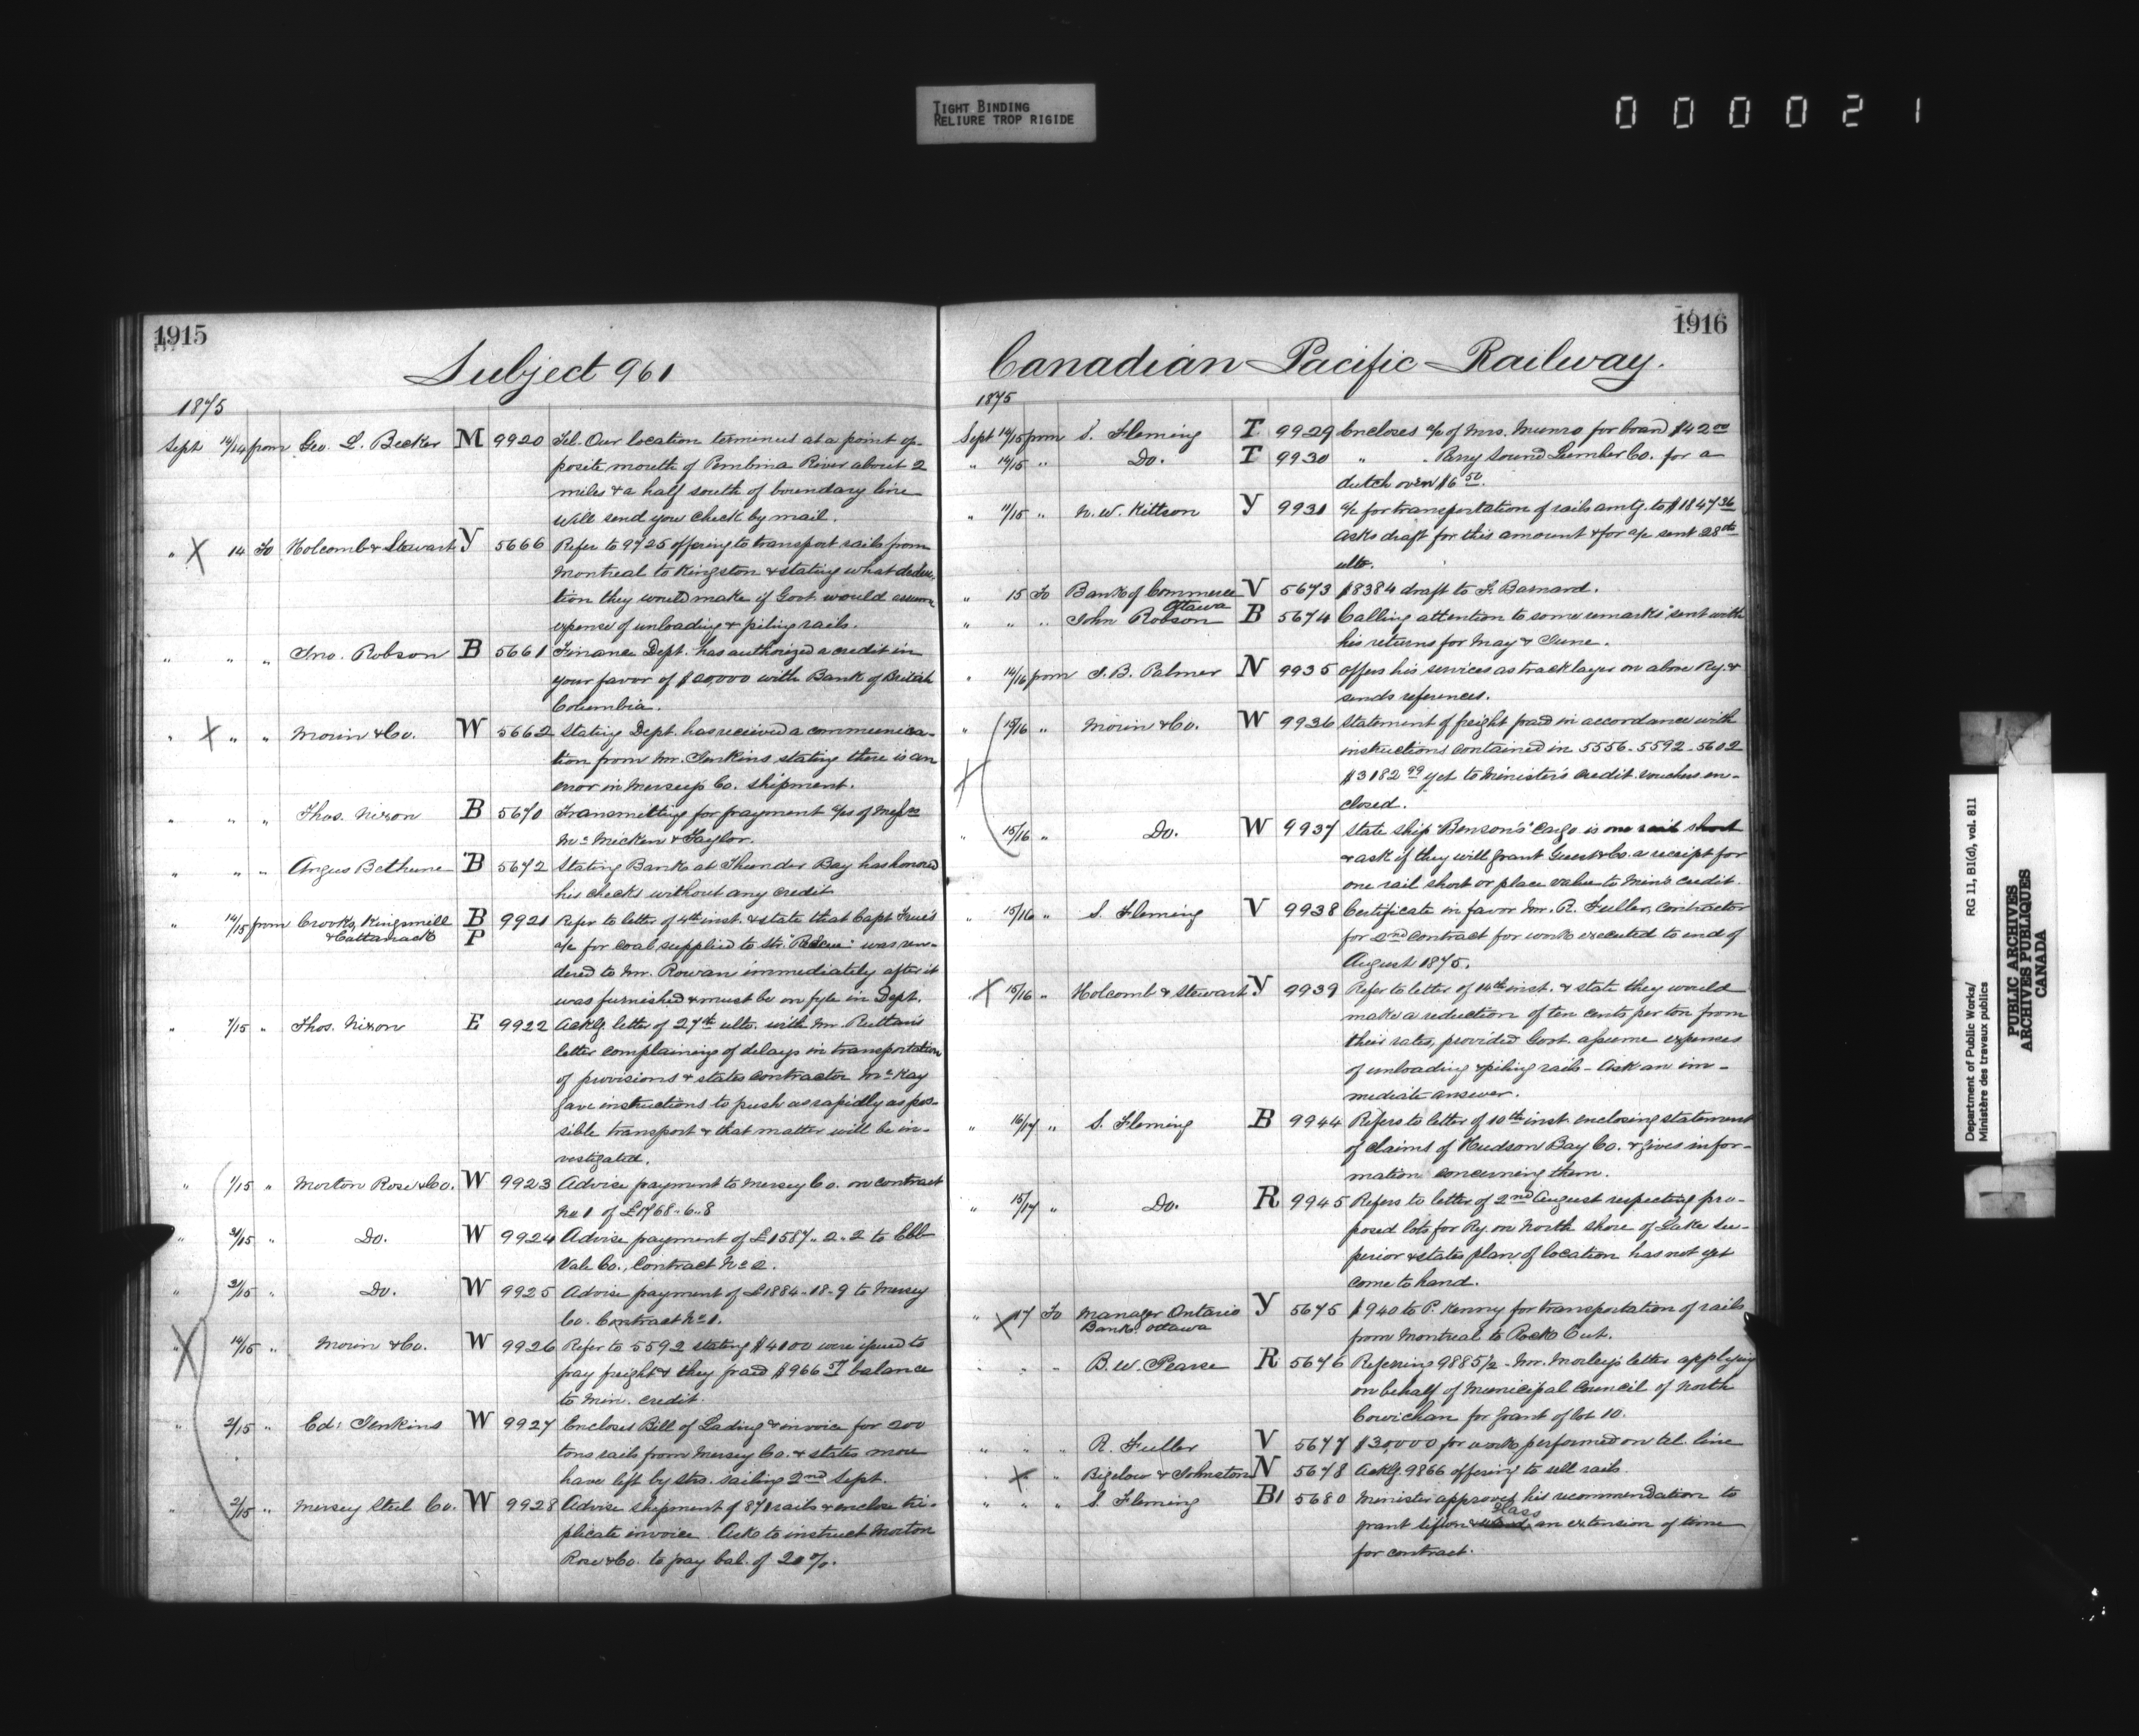 TIGHT BINDING
RELIURE TROP RIGIDE
000021
1915
Subject 961
1875
Sept 14/14 from Geo. L. Becker M 9920 Tel. Our location terminus at a point op-
posite mouth of Pembina River about 2
miles & a half south of boundary line
will send you check by mail.
" X 14 To Holcomb & Stewart Y 5666 Refer to 9725 offering to transport rails from
Montreal to Kingston & stating what deduc-
tion they would make if Govt would assume
expense of unloading & piling rails.
" " " Jno. Robson B 5661 Finance Dept. has authorized a credit in
your favor of $20,000 with Bank of British
Columbia.
" X " " Morin & Co. W 5662 Stating Dept. has received a communica-
tion from Mr. Jenkins stating there is an
error in Merseys Co. shipment.
" " " Thos. Nixon B 5670 Transmitting for payment a/cs of Messrs
McMicken & Taylor.
" " " Angus Bethune B 5672 Stating Bank at Thunder Bay has honored
his checks without any credit
" 14/15 from Crooks, Kingsmill B 9921 Refer to letter of 4th inst. & state that Capt
& Cattanach P a/c for coal supplied to Str. "Rescue" was ren-
dered to Mr. Rowan immediately after it
was furnished & must be on fyle in Dept.
" 7/15 " Thos. Nixon E 9922 Ackg letter of 27th ulto. with Mr. Ruttan's
letter complaining of delays in transportation
of provisions & states contractor McKay
gave instructions to push as rapidly as pos-
sible transport & that matter will be in-
vestigated.
" 1/15 " Morton Rose & Co. W 9923 Advise payment to Mersey Co. on contract
No 1 of £1768..6..8
" 2/15 " Do. W 9924 Advise payment of £1587..2..2 to Ebb
Vale Co., Contract No 2.
" 2/15 " Do. W 9925 Advise payment of £1884-18-9 to Mersey
Co. Contract No 1.
" X 14/15 " Morin & Co. W 9926 Refer to 5592 stating $4100 were issued to
pay freight & they paid $966 57 balance
to Min. credit.
" 2/15 " Ed: Jenkins W 9927 Encloses Bill of Lading & invoice for 200
tons rails from Mersey Co. & states more
have left by Str. sailing 2nd Sept.
" 2/15 " Mersey Steel Co. W 9928 Advise shipment of 871 rails & enclose tri-
plicate invoice. Ask to instruct Morton
Rose & Co. to pay bal. of 20%.
1916
Canadian Pacific Railway.
1875
Sept 14/15 from S. Fleming T 9929 Encloses a/c of Mrs. Munro for board $42 00
" 14/15 " Do. T 9930 " " Parry Sound Lumber Co. for a
dutch oven $6 50.
" 11/15 " N. W. Kittson Y 9931 a/c for transportation of rails amtg. to $1847 36
Asks draft for this amount & for a/c sent 28th
ulto.
" 15 To Bank of Commerce V 5673 $8384 draft to F. Barnard.
Ottawa
" " " John Robson B 5674 Calling attention to some "remarks" sent with
his returns for May & June.
" 14/16 from J. B. Palmer N 9935 Offers his services as tracklayer on above Ry. &
sends references.
" 15/16 " Morin & Co. W 9936 Statement of freight paid in accordance with
instructions contained in 5556-5592-5602
X $3182 99 yet to Minister's credit. vouchers en-
closed.
" 15/16 " Do. W 9937 State ship "Benson's" cargo is one rail short
& ask if they will grant Guest & Co. a receipt for
one rail short or place value to Min's credit.
" 15/16 " S. Fleming V 9938 Certificate in favor Mr. R. Fuller, contractor
for 2nd contract for work executed to end of
August 1875.
" X 15/16 " Holcomb & Stewart Y 9939 Refer to letter of 14th inst. & state they would
make a reduction of ten cents per ton from
their rates, provided Govt. assume expenses
of unloading & piling rails - Ask an im-
mediate answer.
" 16/17 " S. Fleming B 9944 Refers to letter of 10th inst. enclosing statement
of claims of Hudson Bay Co. & gives infor-
mation concerning them.
" 15/17 " Do. R 9945 Refers to letter of 2nd August respecting pro-
posed lots for Ry. on North shore of Lake Su-
perior & states plan of location has not yet
come to hand.
" X 17 To Manager Ontario Y 5675 $940 to P. Kenny for transportation of rails
Bank. Ottawa from Montreal to Rock Cut.
" " " B. W. Pearse R 5676 Referring 9885 1/2 - Mr. Morley's letter applying
on behalf of Municipal Council of North
Cowichan for grant of lot 10.
" " " R. Fuller V 5677 $30,000 for work performed on tel. line
" X " Bigelow & Johnston N 5678 Ackg. 9866 offering to sell rails.
" " " S. Fleming B1 5680 Minister approves his recommendation to
Glass
grant Sifton & an extension of time
for contract.
Department of Public Works/
Ministère des travaux publics
RG 11, B1(d), vol. 811
PUBLIC ARCHIVES
ARCHIVES PUBLIQUES
CANADA